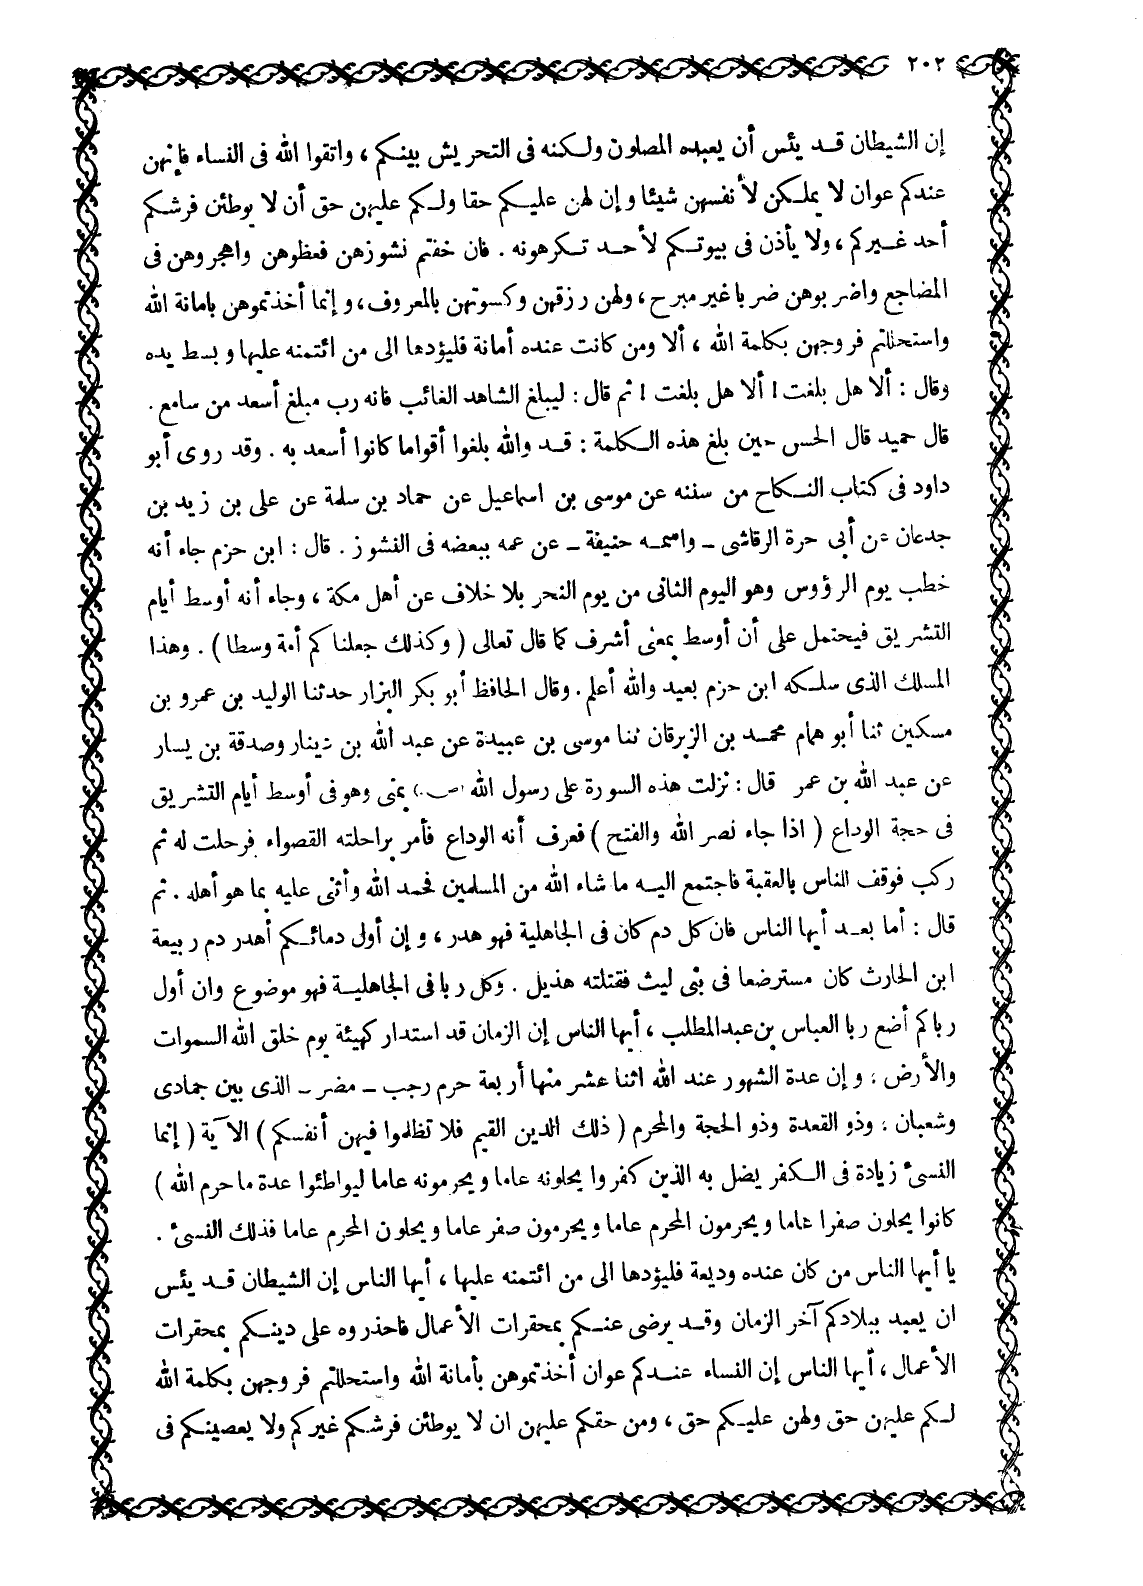 ٢٠٢
إن الشيطان قد يئس أن يعبده المصلون ولكنه فى التحريش بينكم، واتقوا الله فى النساء فإنهن
عندكم عوان لا يملكن لأنفسهن شيئا وإن لهن عليكم حقا ولكم عليهن حق أن لا يوطئن فرشكم
أحد غيركم، ولا يأذن فى بيوتكم لأحد تكرهونه. فان خفتم نشوزهن فعظوهن واهجروهن فى
المضاجع واضربوهن ضربا غير مبرح، ولهن رزقهن وكسوتهن بالمعروف، وإنما أخذتموهن بامانة الله
واستحللتم فروجهن بكلمة الله، ألا ومن كانت عنده أمانة فليؤدها الى من ائتمنه عليها وبسط يده
وقال: ألا هل بلغت! ألا هل بلغت! ثم قال: ليبلغ الشاهد الغائب فانه رب مبلغ أسعد من سامع.
قال حميد قال الحسن حين بلغ هذه الكلمة: قد والله بلغوا أقواما كانوا أسعد به. وقد روى أبو
داود فى كتاب النكاح من سننه عن موسى بن اسماعيل عن حماد بن سلمة عن على بن زيد بن
جدعان عن أبى حرة الرقاشى ــ واسمه حنيفة ــ عن عمه ببعضه فى النشوز. قال: ابن حزم جاء أنه
خطب يوم الرؤوس وهو اليوم الثانى من يوم النحر بلا خلاف عن أهل مكة، وجاء أنه أوسط أيام
التشريق فيحتمل على أن أوسط بمعنى أشرف كما قال تعالى (وكذلك جعلناكم أمة وسطا). وهذا
المسلك الذى سلكه ابن حزم بعيد والله أعلم. وقال الحافظ أبو بكر البزار حدثنا الوليد بن عمرو بن
مسكين ثنا أبو همام محمد بن الزبرقان ثنا موسى بن عبيدة عن عبد الله بن دينار وصدقة بن يسار
عن عبد الله بن عمر قال: نزلت هذه السورة على رسول الله (ص) بمنى وهو فى أوسط أيام التشريق
فى حجة الوداع (اذا جاء نصر الله والفتح) فعرف أنه الوداع فأمر براحلته القصواء فرحلت له ثم
ركب فوقف الناس بالعقبة فاجتمع اليه ما شاء الله من المسلمين فحمد الله وأثنى عليه بما هو أهله. ثم
قال: أما بعد أيها الناس فان كل دم كان فى الجاهلية فهو هدر، وإن أول دمائكم أهدر دم ربيعة
ابن الحارث كان مسترضعا فى بنى ليث فقتلته هذيل. وكل ربا فى الجاهلية فهو موضوع وان أول
رباكم أضع ربا العباس بن عبد المطلب، أيها الناس إن الزمان قد استدار كهيئة يوم خلق الله السموات
والأرض، وإن عدة الشهور عند الله اثنا عشر منها أربعة حرم رجب ــ مضر ــ الذى بين جمادى
وشعبان، وذو القعدة وذو الحجة والمحرم (ذلك الدين القيم فلا تظلموا فيهن أنفسكم) الآية (إنما
النسىء زيادة فى الكفر يضل به الذين كفروا يحلونه عاما ويحرمونه عاما ليواطئوا عدة ما حرم الله)
كانوا يحلون صفرا عاما ويحرمون المحرم عاما ويحرمون صفر عاما ويحلون المحرم عاما فذلك النسىء.
يا أيها الناس من كان عنده وديعة فليؤدها الى من ائتمنه عليها، أيها الناس إن الشيطان قد يئس
ان يعبد ببلادكم آخر الزمان وقد يرضى عنكم بمحقرات الأعمال فاحذروه على دينكم بمحقرات
الأعمال، أيها الناس إن النساء عندكم عوان أخذتموهن بأمانة الله واستحللتم فروجهن بكلمة الله
لكم عليهن حق ولهن عليكم حق، ومن حقكم عليهن ان لا يوطئن فرشكم غيركم ولا يعصينكم فى